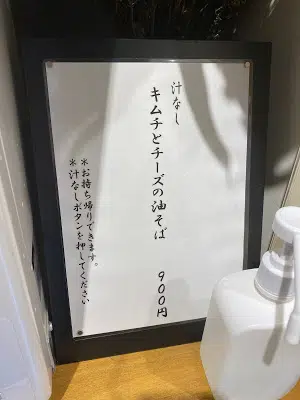 汁なし
キムチとチーズの油そば　900円
＊お持ち帰りできます。
＊汁なしボタンを押してください